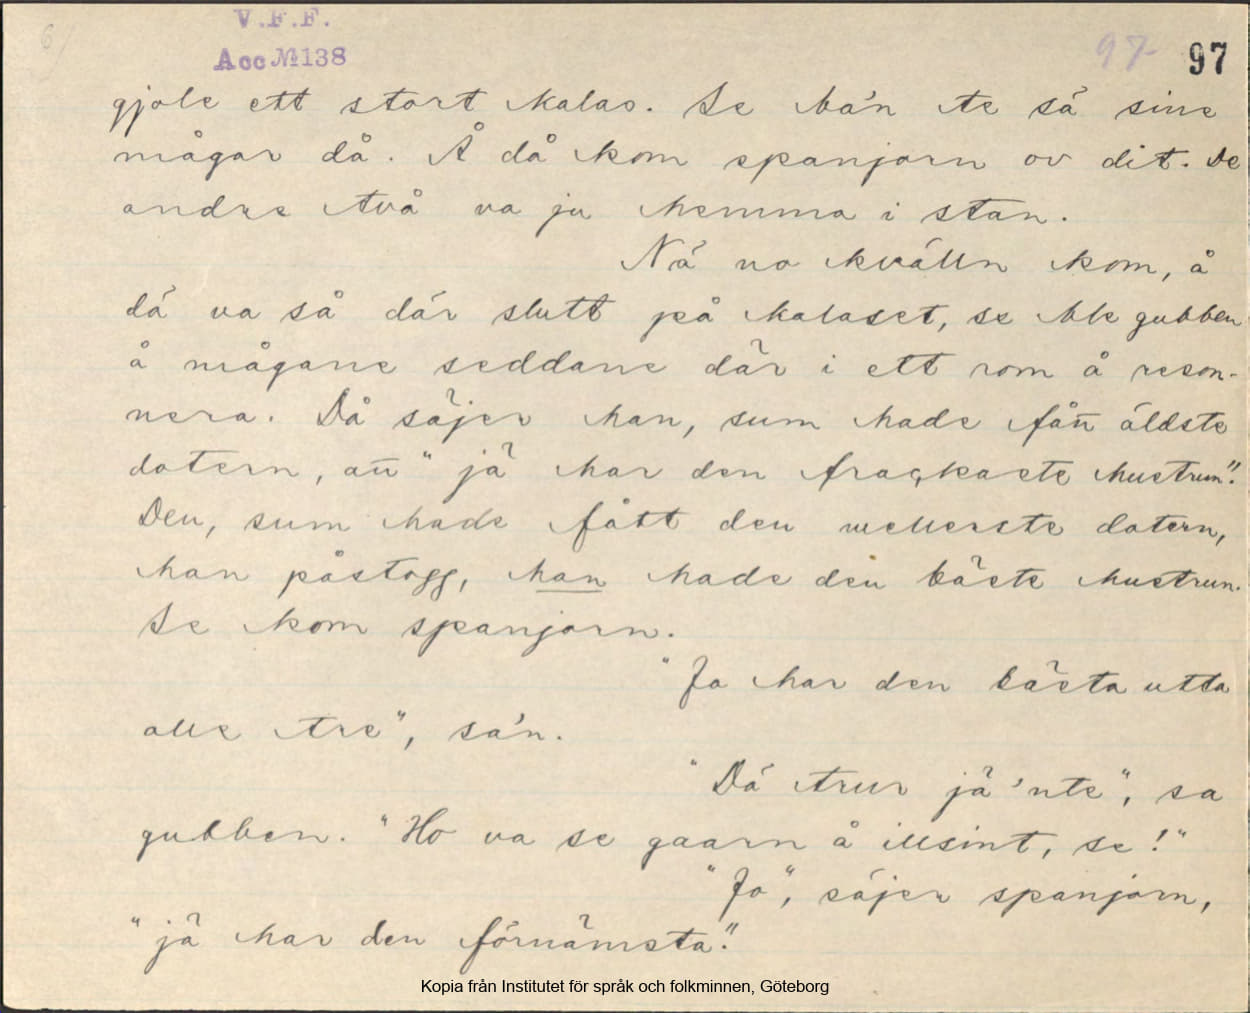 V.F.F.
Acc № 138
6/
97
97
gjole ett stort kalas. Se ba'n te sä sine
mågar då. Å då kom spanjorn ov dit. De
andre två va ju hemma i stan.
Nä va kvälln kom, å
dä va så där slutt på kalaset, se ble gubben
å mågane seddane där i ett rom å reson-
nera. Då säjer han, sum hade fåń äldste
dotern, ań "jä har den fraskaste hustrun".
Den, sum hade fått den mellerste dotern,
han påstogg, han hade den bäste hustrun.
Se kom spanjorn.
"Ja har den bästa utta
alle tre", sa'n.
"Dä trur jä 'nte", sa
gubben. "Ho va se gaarn å illsint, se!"
"Jo", säjer spanjorn,
"jä har den förnämsta".
Kopia från Institutet för språk och folkminnen, Göteborg